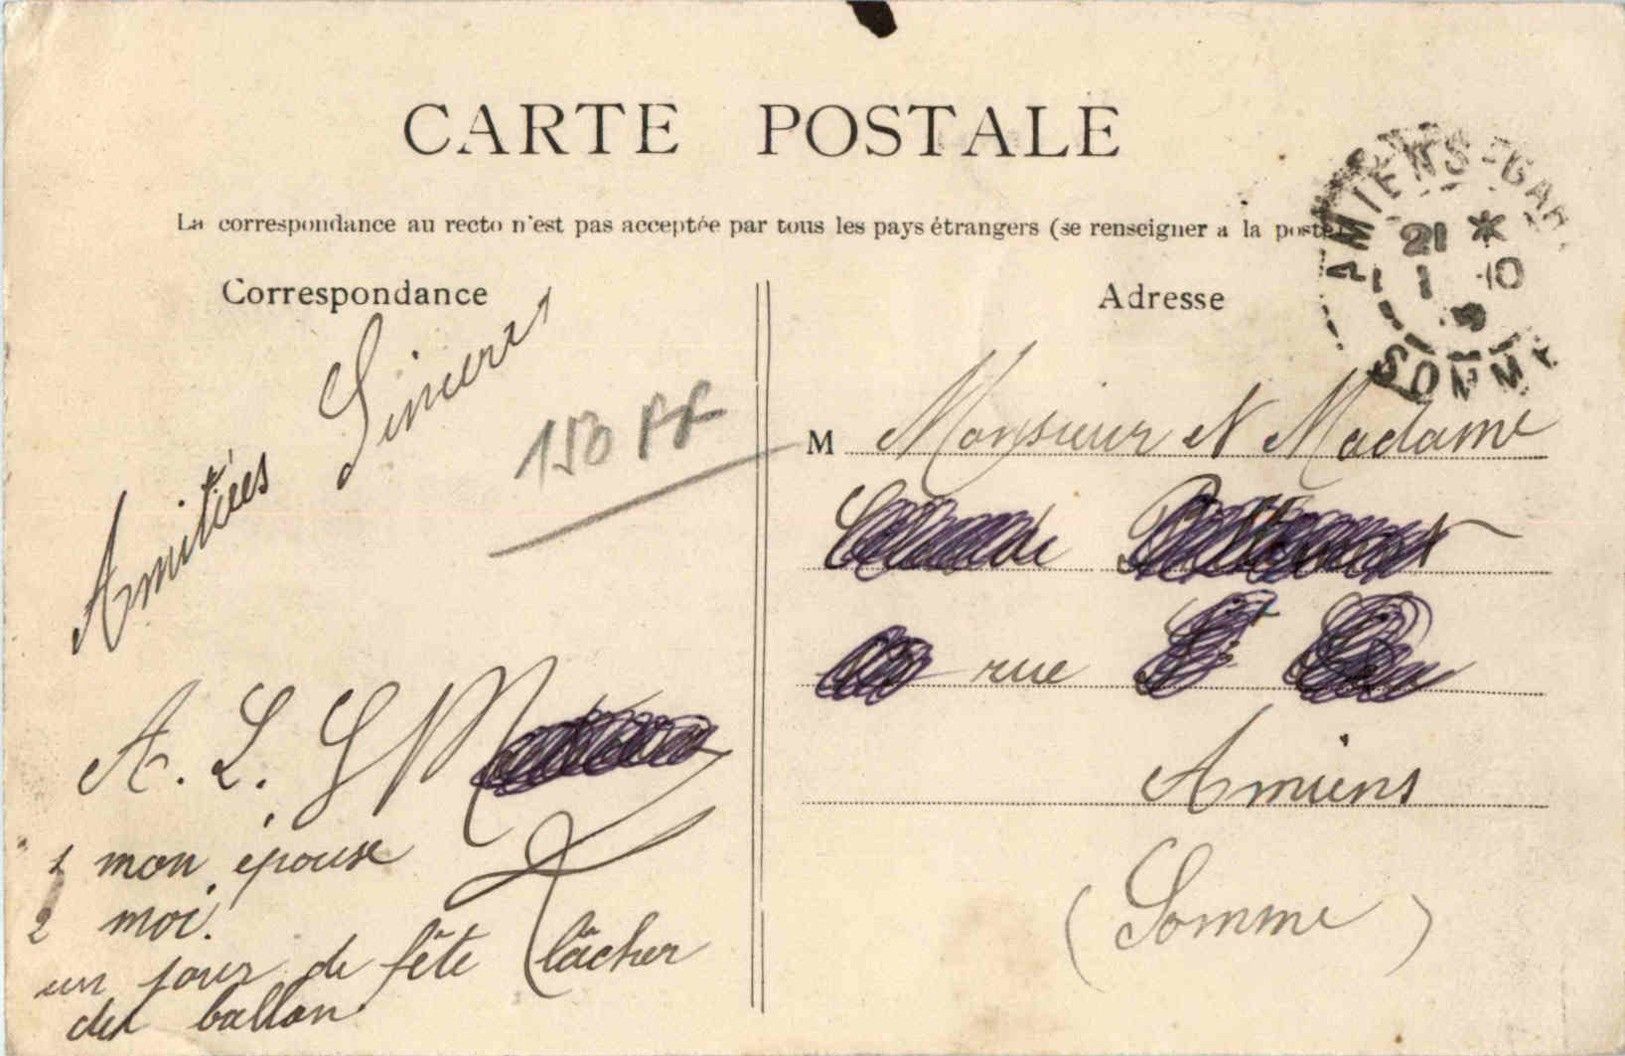 CARTE POSTALE
La correspondance au recto n'est pas acceptée par tous les pays étrangers (se renseigner a la poste)
Correspondance
Amitiées Sincères
150 FF
A. L. G M
1 mon épouse
2 moi.
un jour de fête lâcher
du ballon
Adresse
AMIENS-GARE
21 *
1 10
SOMME
M Monsieur et Madame
rue
Amiens
(Somme)